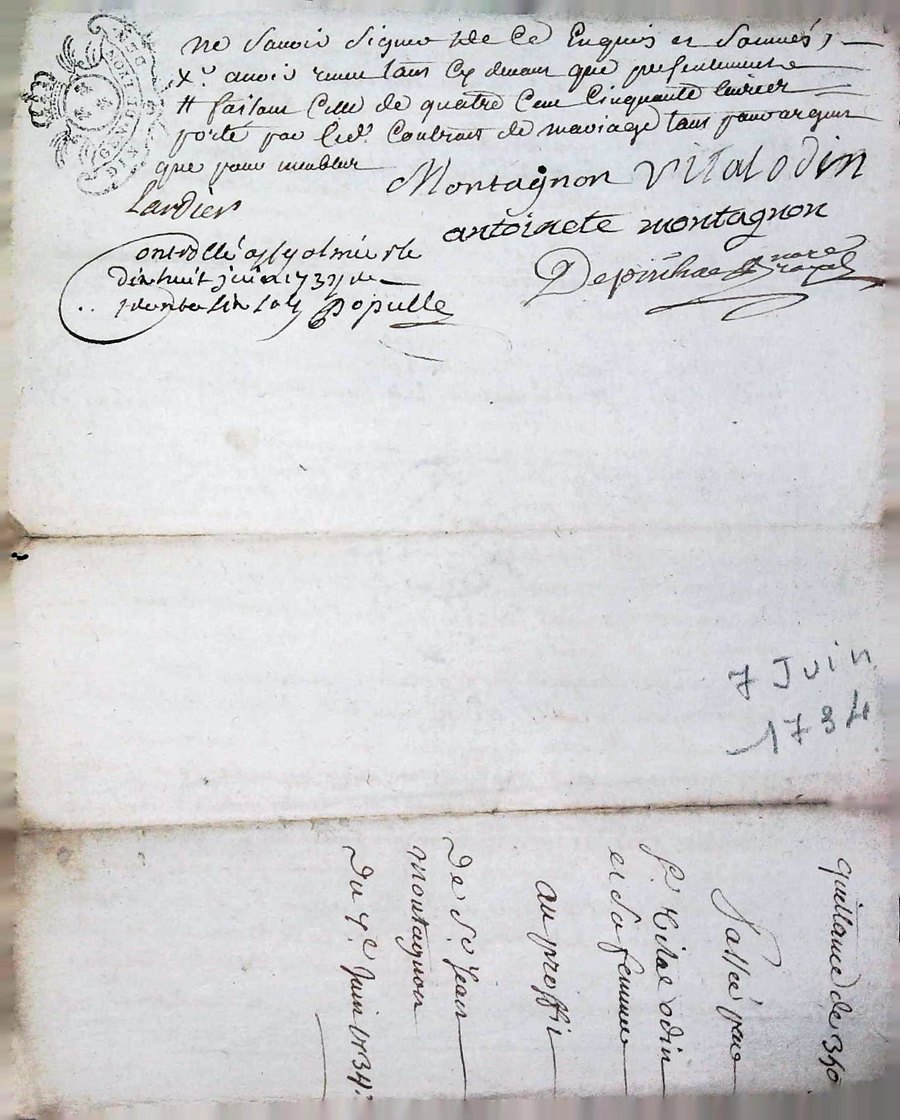 ne Savoir Signer de Ce Enquis et Sommés,
avoir receu tant Cy devant que presentement
# faisant Celle de quatre Cent Cinquante livres
porté par led. Contract de mariage tant pour argent
que pour meubles
Montagnon Vital odin
Lardier
antoinete montagnon
ontrollé a
dixhuit juin 173
Populle
7 Juin
1734
quittance de 340
Passée par
Sr Vital odin
et Sa femme
au proffit
De Sr. Jean
montagnon
Du 7e. Juin 1734.